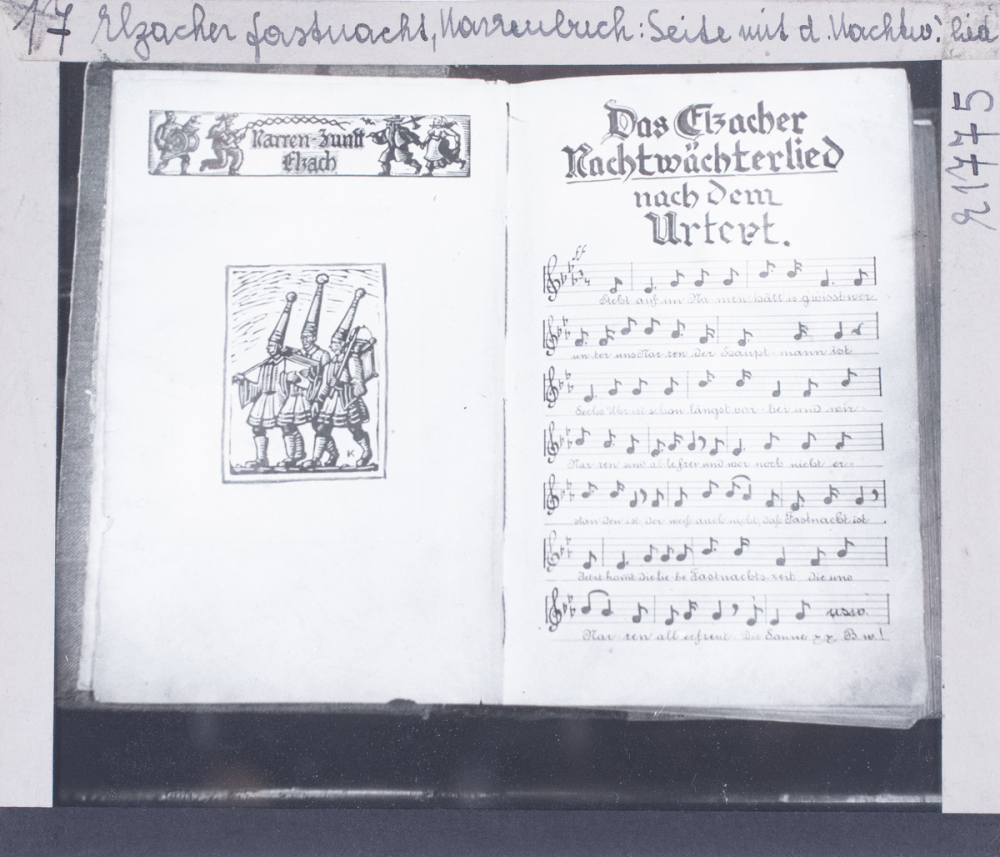 17 Elzacher Fastnacht, Narrenbuch: Seite mit d. Nachtw. lied
21775
Narren-Zunft
Elzach
K
Das Elzacher
Nachtwächterlied
nach dem
Urtext.
ff
Steht auf im Na men hätt is gwisst wer
un ter uns Nar ren der Haupt mann ist
Sechs Uhr ist schon längst vor bei und wir
Nar ren sind al le frei und wer noch nicht er-
stan den ist, der weiß auch nicht, daß Fastnacht ist
Jetzt kommt die lie be Fastnachts zeit die uns
usw.
Nar ren all erfreut. Die Sonne